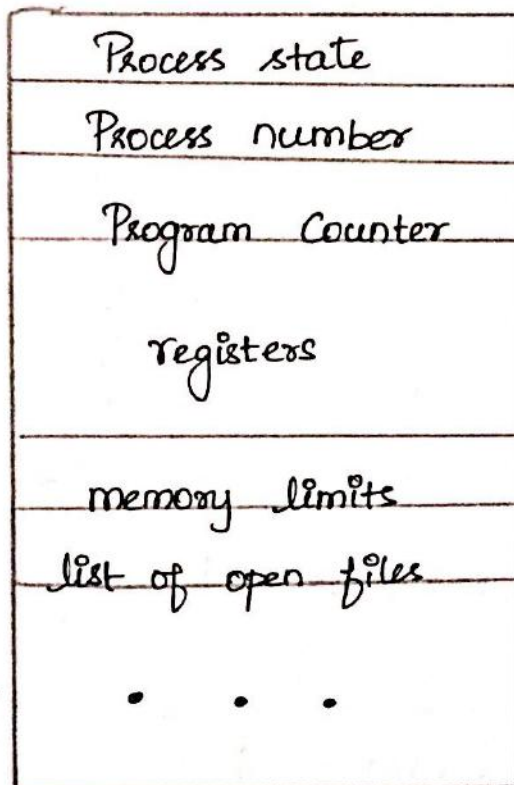 Process state
Process number
Program Counter
registers
memory limits
list of open files
. . .